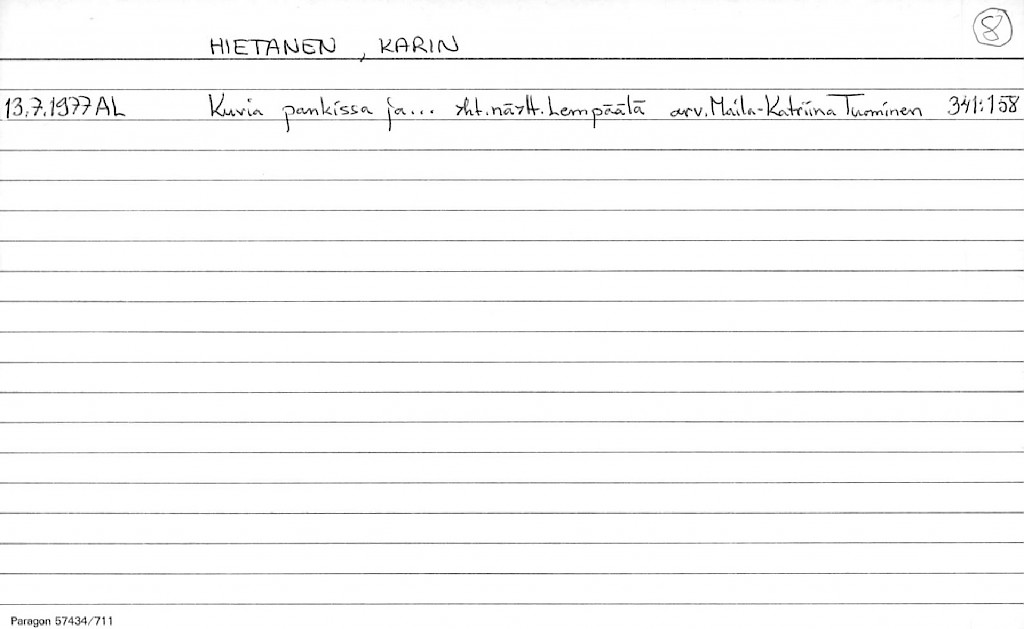 8
HIETANEN, KARIN
13.7.1977 AL Kuvia pankissa ja... yht.näytt. Lempäälä arv. Maila-Katriina Tuominen 341:158
Paragon 57434/711